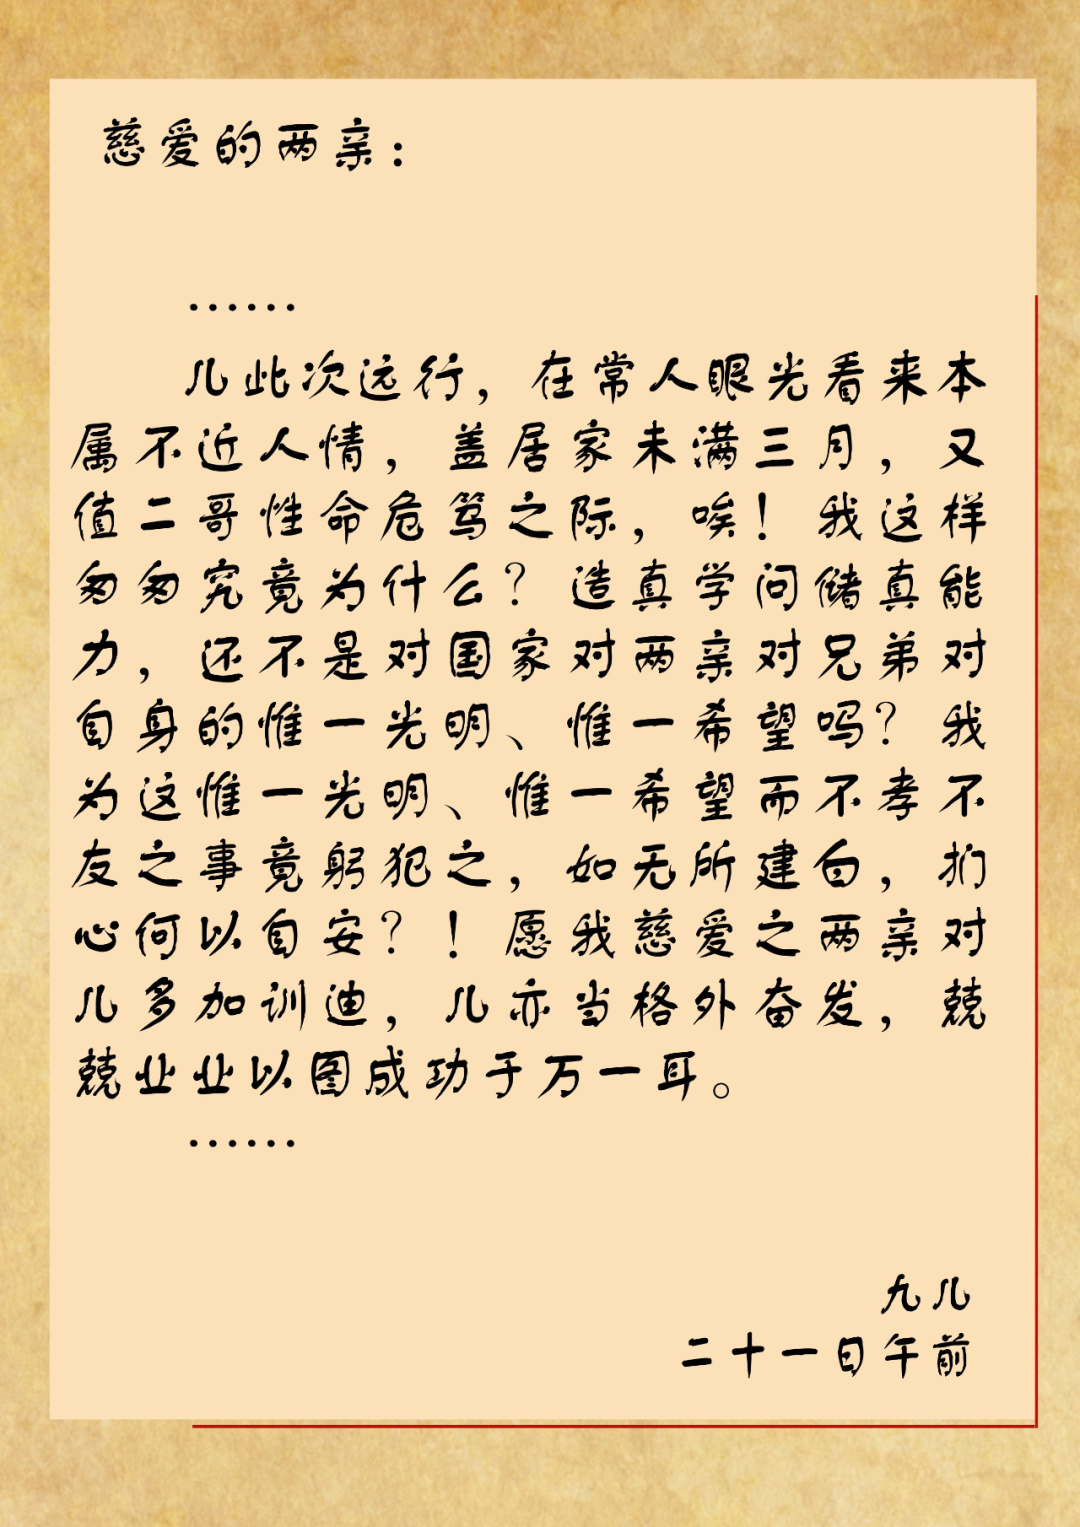 慈爱的两亲：
……
儿此次远行，在常人眼光看来本
属不近人情，盖居家未满三月，又
值二哥性命危笃之际，唉！我这样
匆匆究竟为什么？造真学问储真能
力，还不是对国家对两亲对兄弟对
自身的惟一光明、惟一希望吗？我
为这惟一光明、惟一希望而不孝不
友之事竟躬犯之，如无所建白，扪
心何以自安？！愿我慈爱之两亲对
儿多加训迪，儿亦当格外奋发，兢
兢业业以图成功于万一耳。
……
九儿
二十一日午前